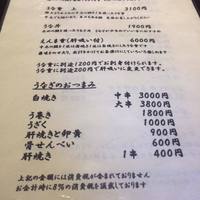 うな重 上 3100円
うな丼 1900円
まんま重(肝吸い付) 6000円
うな重に別途1200円でお刺身付けられます。
うな重に別途200円で肝吸いに変更できます。
うなぎのおつまみ
白焼き 中串 3000円
大串 3800円
う巻き 1800円
うざく 1000円
肝焼きと卵黄 900円
骨せんべい 600円
肝焼き 1串 400円
上記の金額には消費税が含まれておりません
お会計時に8%の消費税を頂戴しております